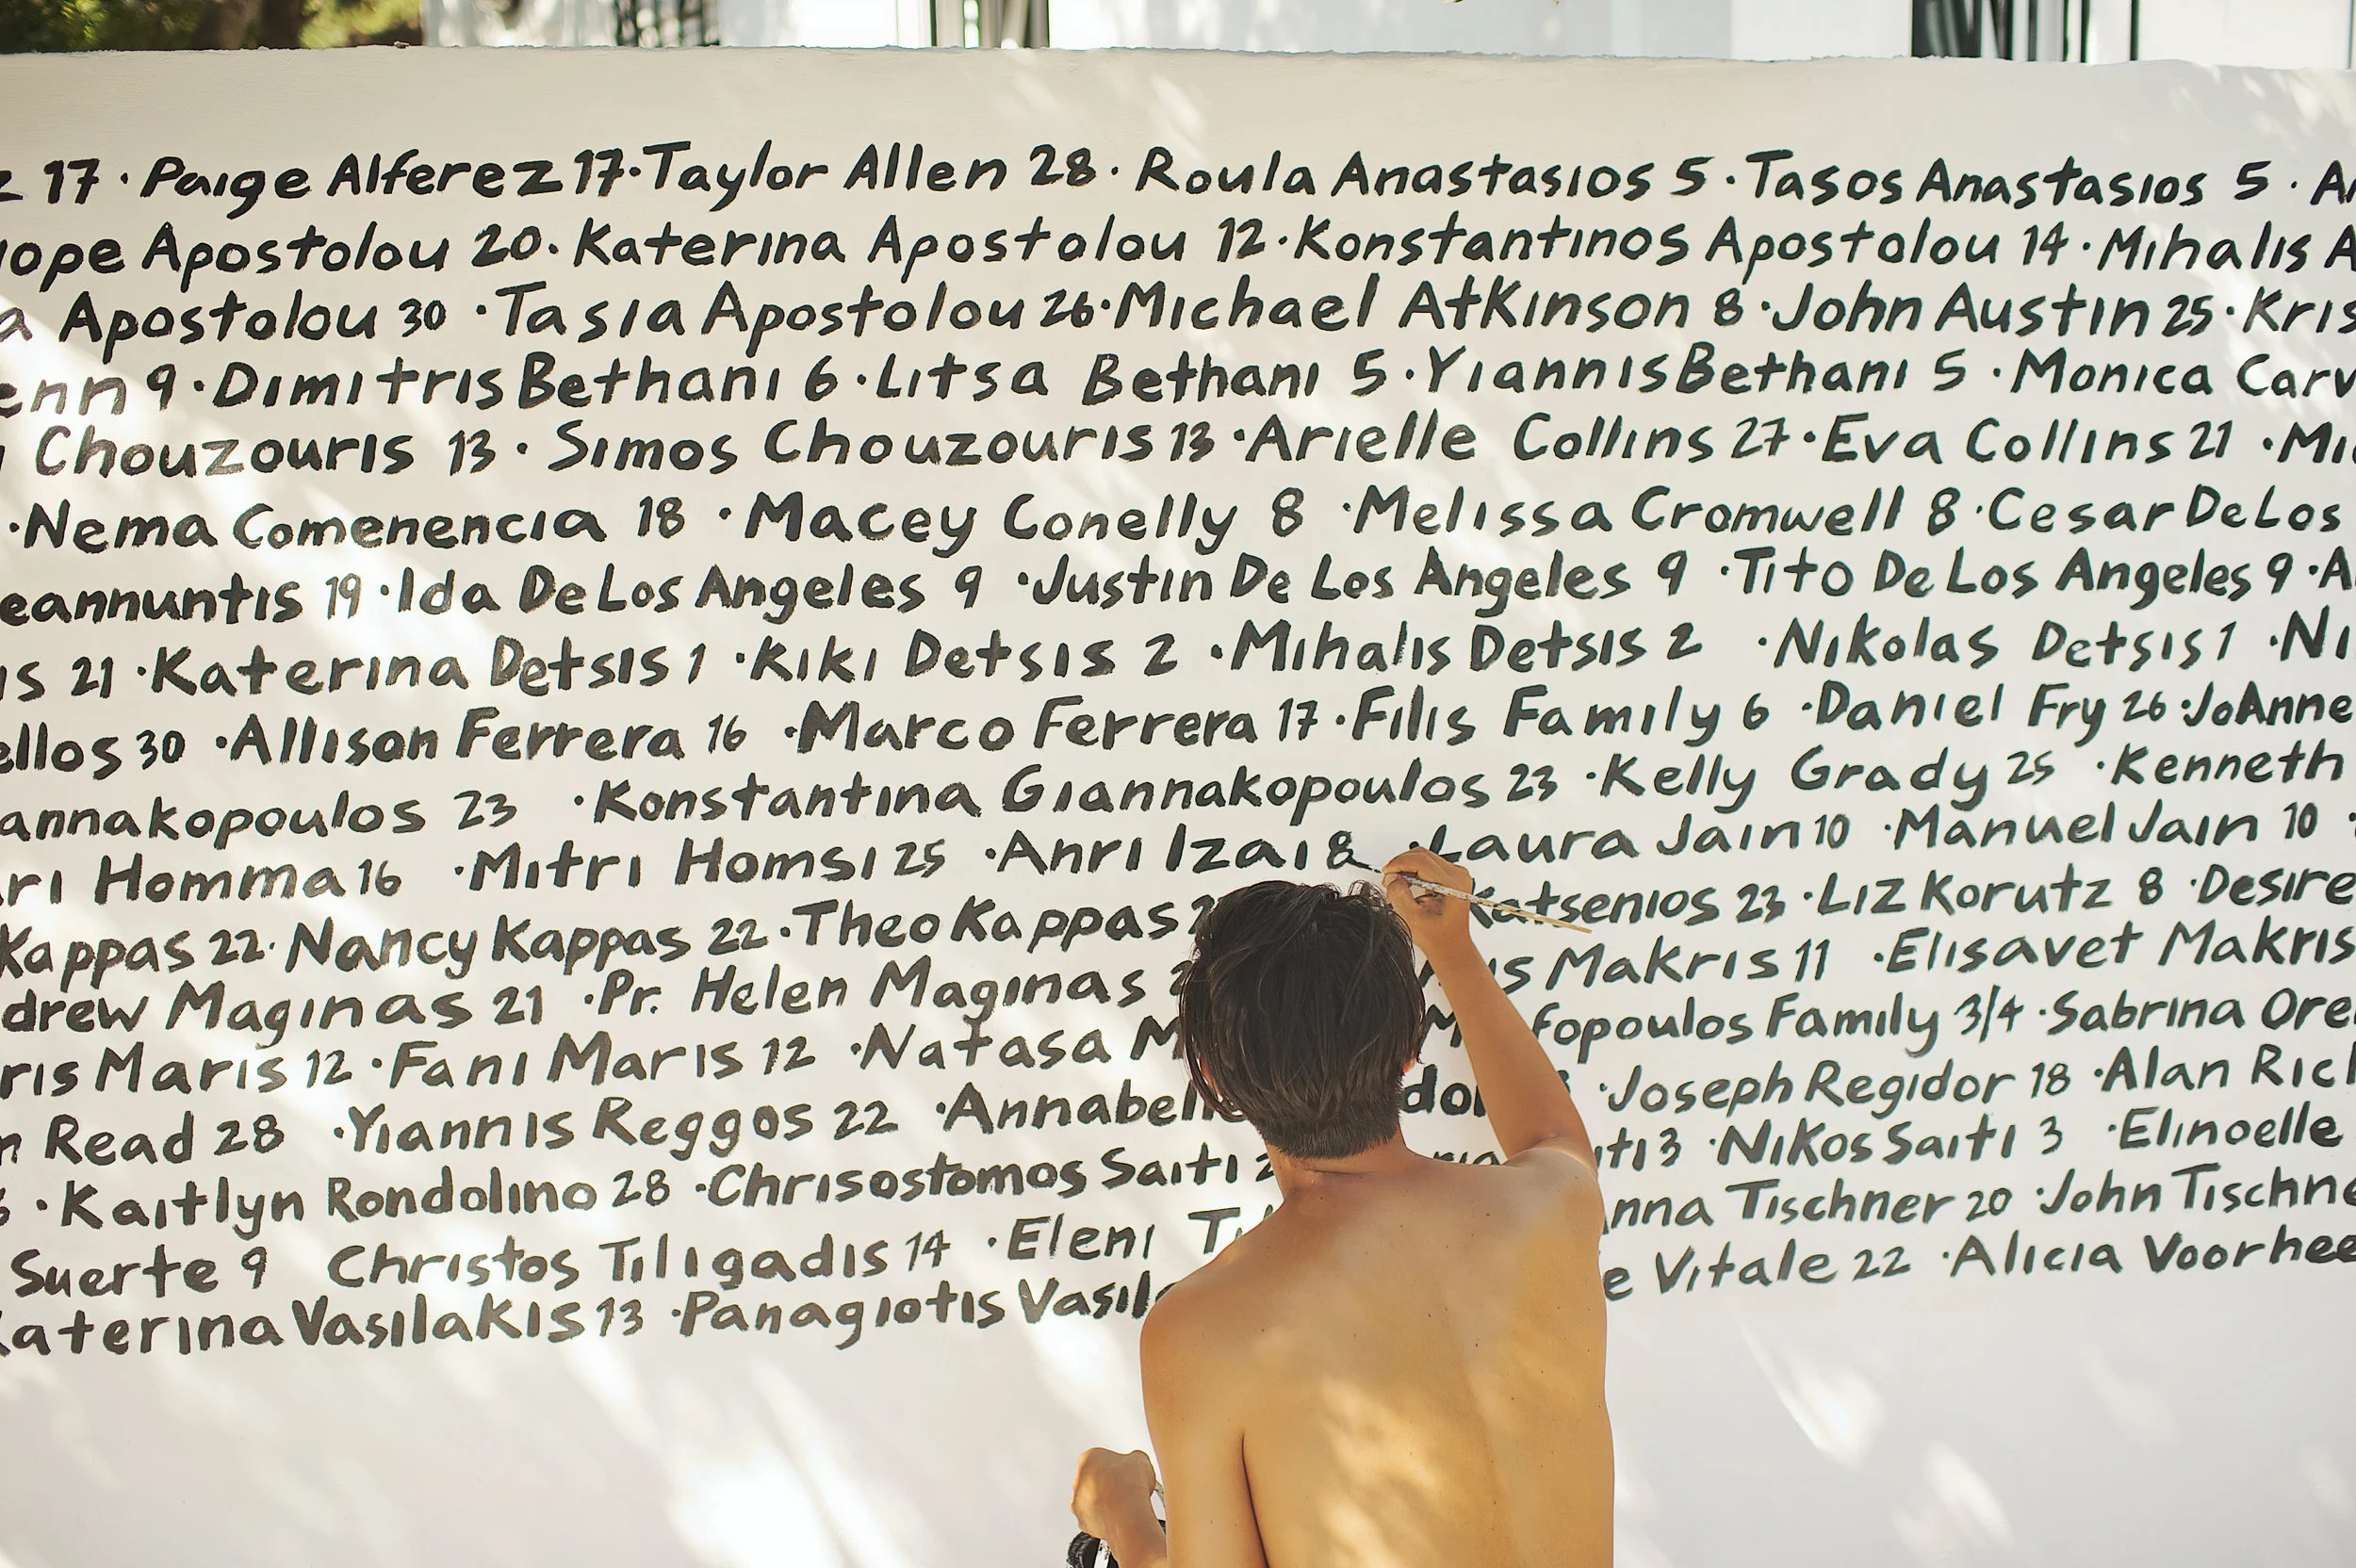 17 · Paige Alferez 17 · Taylor Allen 28 · Roula Anastasios 5 · Tasos Anastasios 5 ·
Apostolou 20 · Katerina Apostolou 12 · Konstantinos Apostolou 14 · Mihalis
Apostolou 30 · Tasia Apostolou 26 · Michael Atkinson 8 · John Austin 25 ·
9 · Dimitris Bethani 6 · Litsa Bethani 5 · Yiannis Bethani 5 · Monica
Chouzouris 13 · Simos Chouzouris 13 · Arielle Collins 27 · Eva Collins 21 ·
· Nema Comenencia 18 · Macey Conelly 8 · Melissa Cromwell 8 · Cesar De Los
19 · Ida De Los Angeles 9 · Justin De Los Angeles 9 · Tito De Los Angeles 9 ·
21 · Katerina Detsis 1 · Kiki Detsis 2 · Mihalis Detsis 2 · Nikolas Detsis 1 ·
30 · Allison Ferrera 16 · Marco Ferrera 17 · Filis Family 6 · Daniel Fry 26 · JoAnne
23 · Konstantina Giannakopoulos 23 · Kelly Grady 25 · Kenneth
Homma 16 · Mitri Homsi 25 · Anri Izai 8 · Laura Jain 10 · Manuel Jain 10 ·
Kappas 22 · Nancy Kappas 22 · Theo Kappas Katsenios 23 · Liz Korutz 8 ·
Maginas 21 · Pr. Helen Maginas Makris 11 · Elisavet Makris
Maris 12 · Fani Maris 12 · Natasa Family 3/4 · Sabrina
Read 28 · Yiannis Reggos 22 · Joseph Regidor 18 · Alan
· Kaitlyn Rondolino 28 · Chrisostomos Saiti 3 · Nikos Saiti 3 · Elinoelle
Suerte 9 Christos Tiligadis 14 · Eleni Tischner 20 · John
Vasilakis 13 · Panagiotis Vitale 22 · Alicia